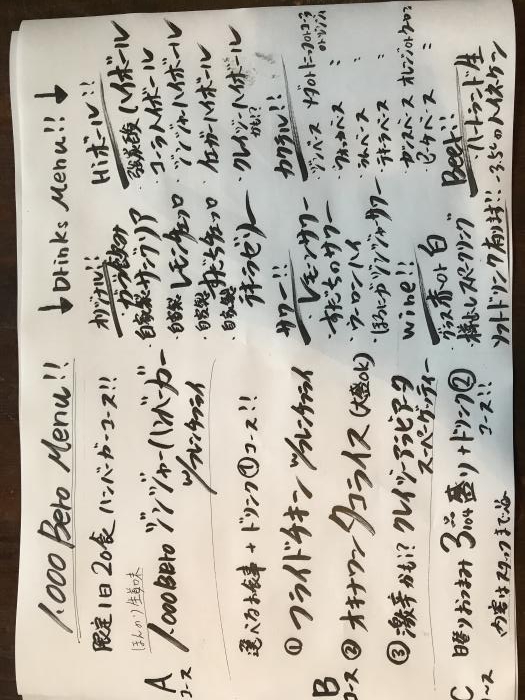 1.000 Bero Menu!!
限定1日20食 ハンバーガーコース!!
ほんのり生姜味
Aコース
1.000BERO ジンジャーハンバーガー
W/フレンチフライ
選べるお食事 + ドリンク①コース!!
Bコース
① フライドチキン W/フレンチフライ
② オキナワン タコライス (大盛OK)
③ 激辛かも!? クレイジーアラビアータ
スパゲッティー
Cコース
日替りおつまみ 3 盛り + ドリンク②
コース!!
内容はスタッフまで
↓Drinks Menu!!↓
オリジナル!!
自家製サングリア
・自家製 レモンチェッロ
・自家製 すだちチェッロ
・自家製 テキーラゼリー
サワー!!
・レモンサワー
・すだちのサワー
・ウーロンハイ
・ほろにがジンジャーサワー
wine!!
・グラス 赤 or 白
・樽出しスパークリング
ソフトドリンク有ります!!
Hiボール!!
ハイボール
・コーラハイボール
・ジンジャーハイボール
・クレイジーハイボール
かも!?
カクテル!!
・ジンベース ソーダ or トニック or コーラ or オレンジ
・ウォッカベース 〃
・ラムベース 〃
・テキーラベース 〃
・カシスベース オレンジ or ウーロン
・ピーチベース 〃
Beer!!
・ハートランド生
・ハイネケン